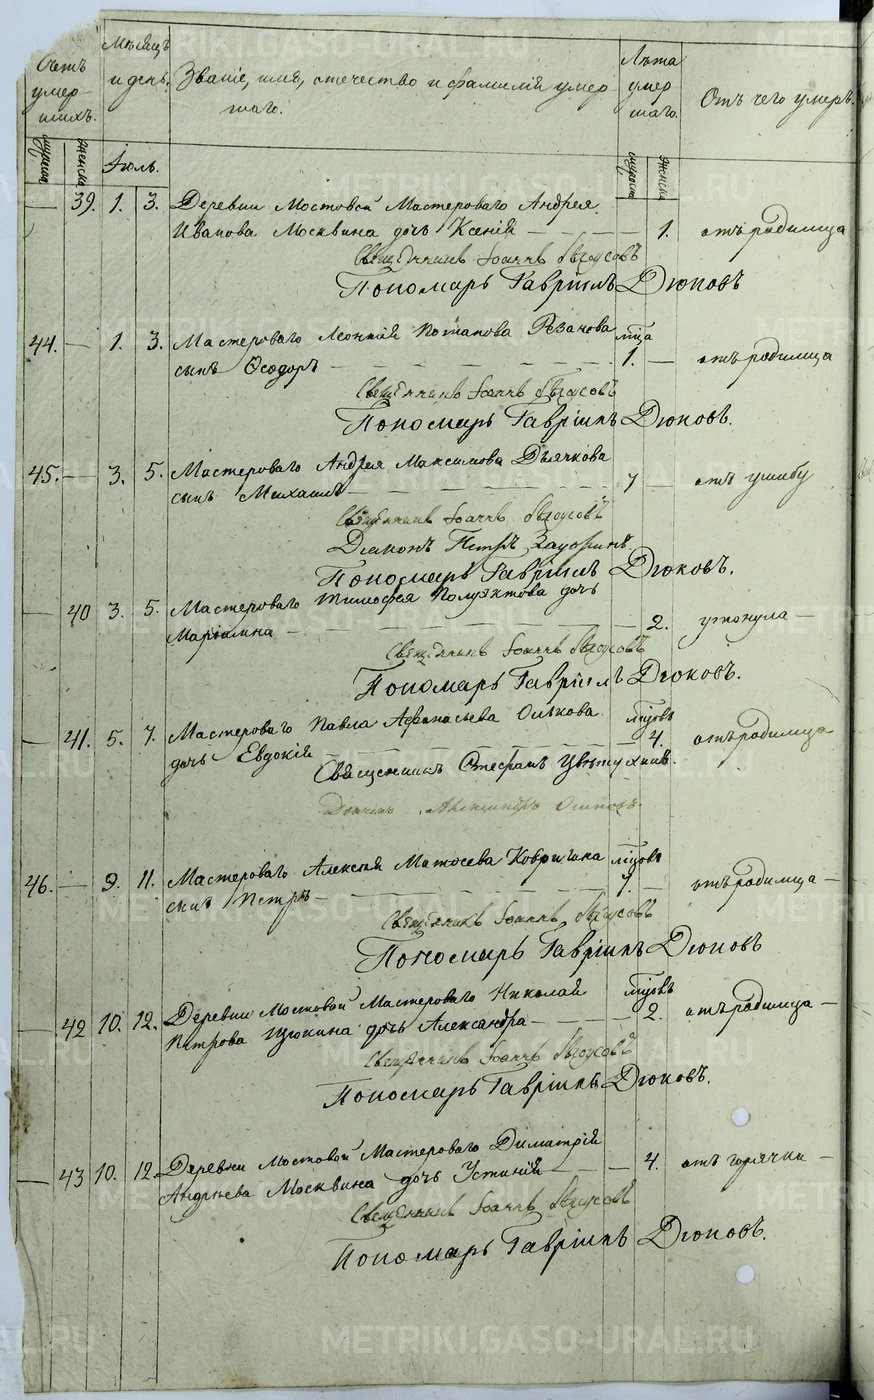 Счетъ умер-шихъ.
Мѣсяцъ и день.
Званіе, имя, отечество и фамилія умер
шаго.
Лѣта умер шаго.
Отъ чего умеръ.
мужеска
женска
Іюль.
мужеска
женска
39. 1. 3. Деревни Мостовой Мастероваго Андрея
Иванова Москвина дочь Ксенія 1. отъ родимца
Священникъ Іоаннъ
Пономарь Гавріилъ Дюковъ
44. 1. 3. Мастероваго Леонтія Потапова Рѣзанова мца
сынъ Ѳеодоръ 1. отъ родимца
Священникъ Іоаннъ
Пономарь Гавріилъ Дюковъ.
45. 3. 5. Мастероваго Андрея Максимова Дьячкова
сынъ Михаилъ 7 отъ ушибу
Священникъ Іоаннъ
Діаконъ Петръ
Пономарь Гавріилъ Дюковъ.
40 3. 5. Мастероваго Тимофея Полуектова дочь
Маріамна 2. утонула
Священникъ Іоаннъ
Пономарь Гавріилъ Дюковъ.
41. 5. 7. Мастероваго Павла Афанасьева Олькова мцовъ
дочь Евдокія 4. отъ родимца
Священникъ Стефанъ Цвѣтухинъ.
Александръ Осиповъ
46. 9. 11. Мастероваго Алексѣя Матѳеева Кобригина мцовъ
сынъ Петръ 7. отъ родимца
Священникъ Іоаннъ
Пономарь Гавріилъ Дюковъ
42 10. 12. Деревни Мостовой Мастероваго Николая мцовъ
Петрова дочь Александра 2. отъ родимца
Священникъ Іоаннъ
Пономарь Гавріилъ Дюковъ.
43 10. 12. Деревни Мостовой Мастероваго Димитрія
Андреева Москвина дочь Устинія 4. отъ горячки
Священникъ Іоаннъ
Пономарь Гавріилъ Дюковъ.
METRIKI.GASO-URAL.RU